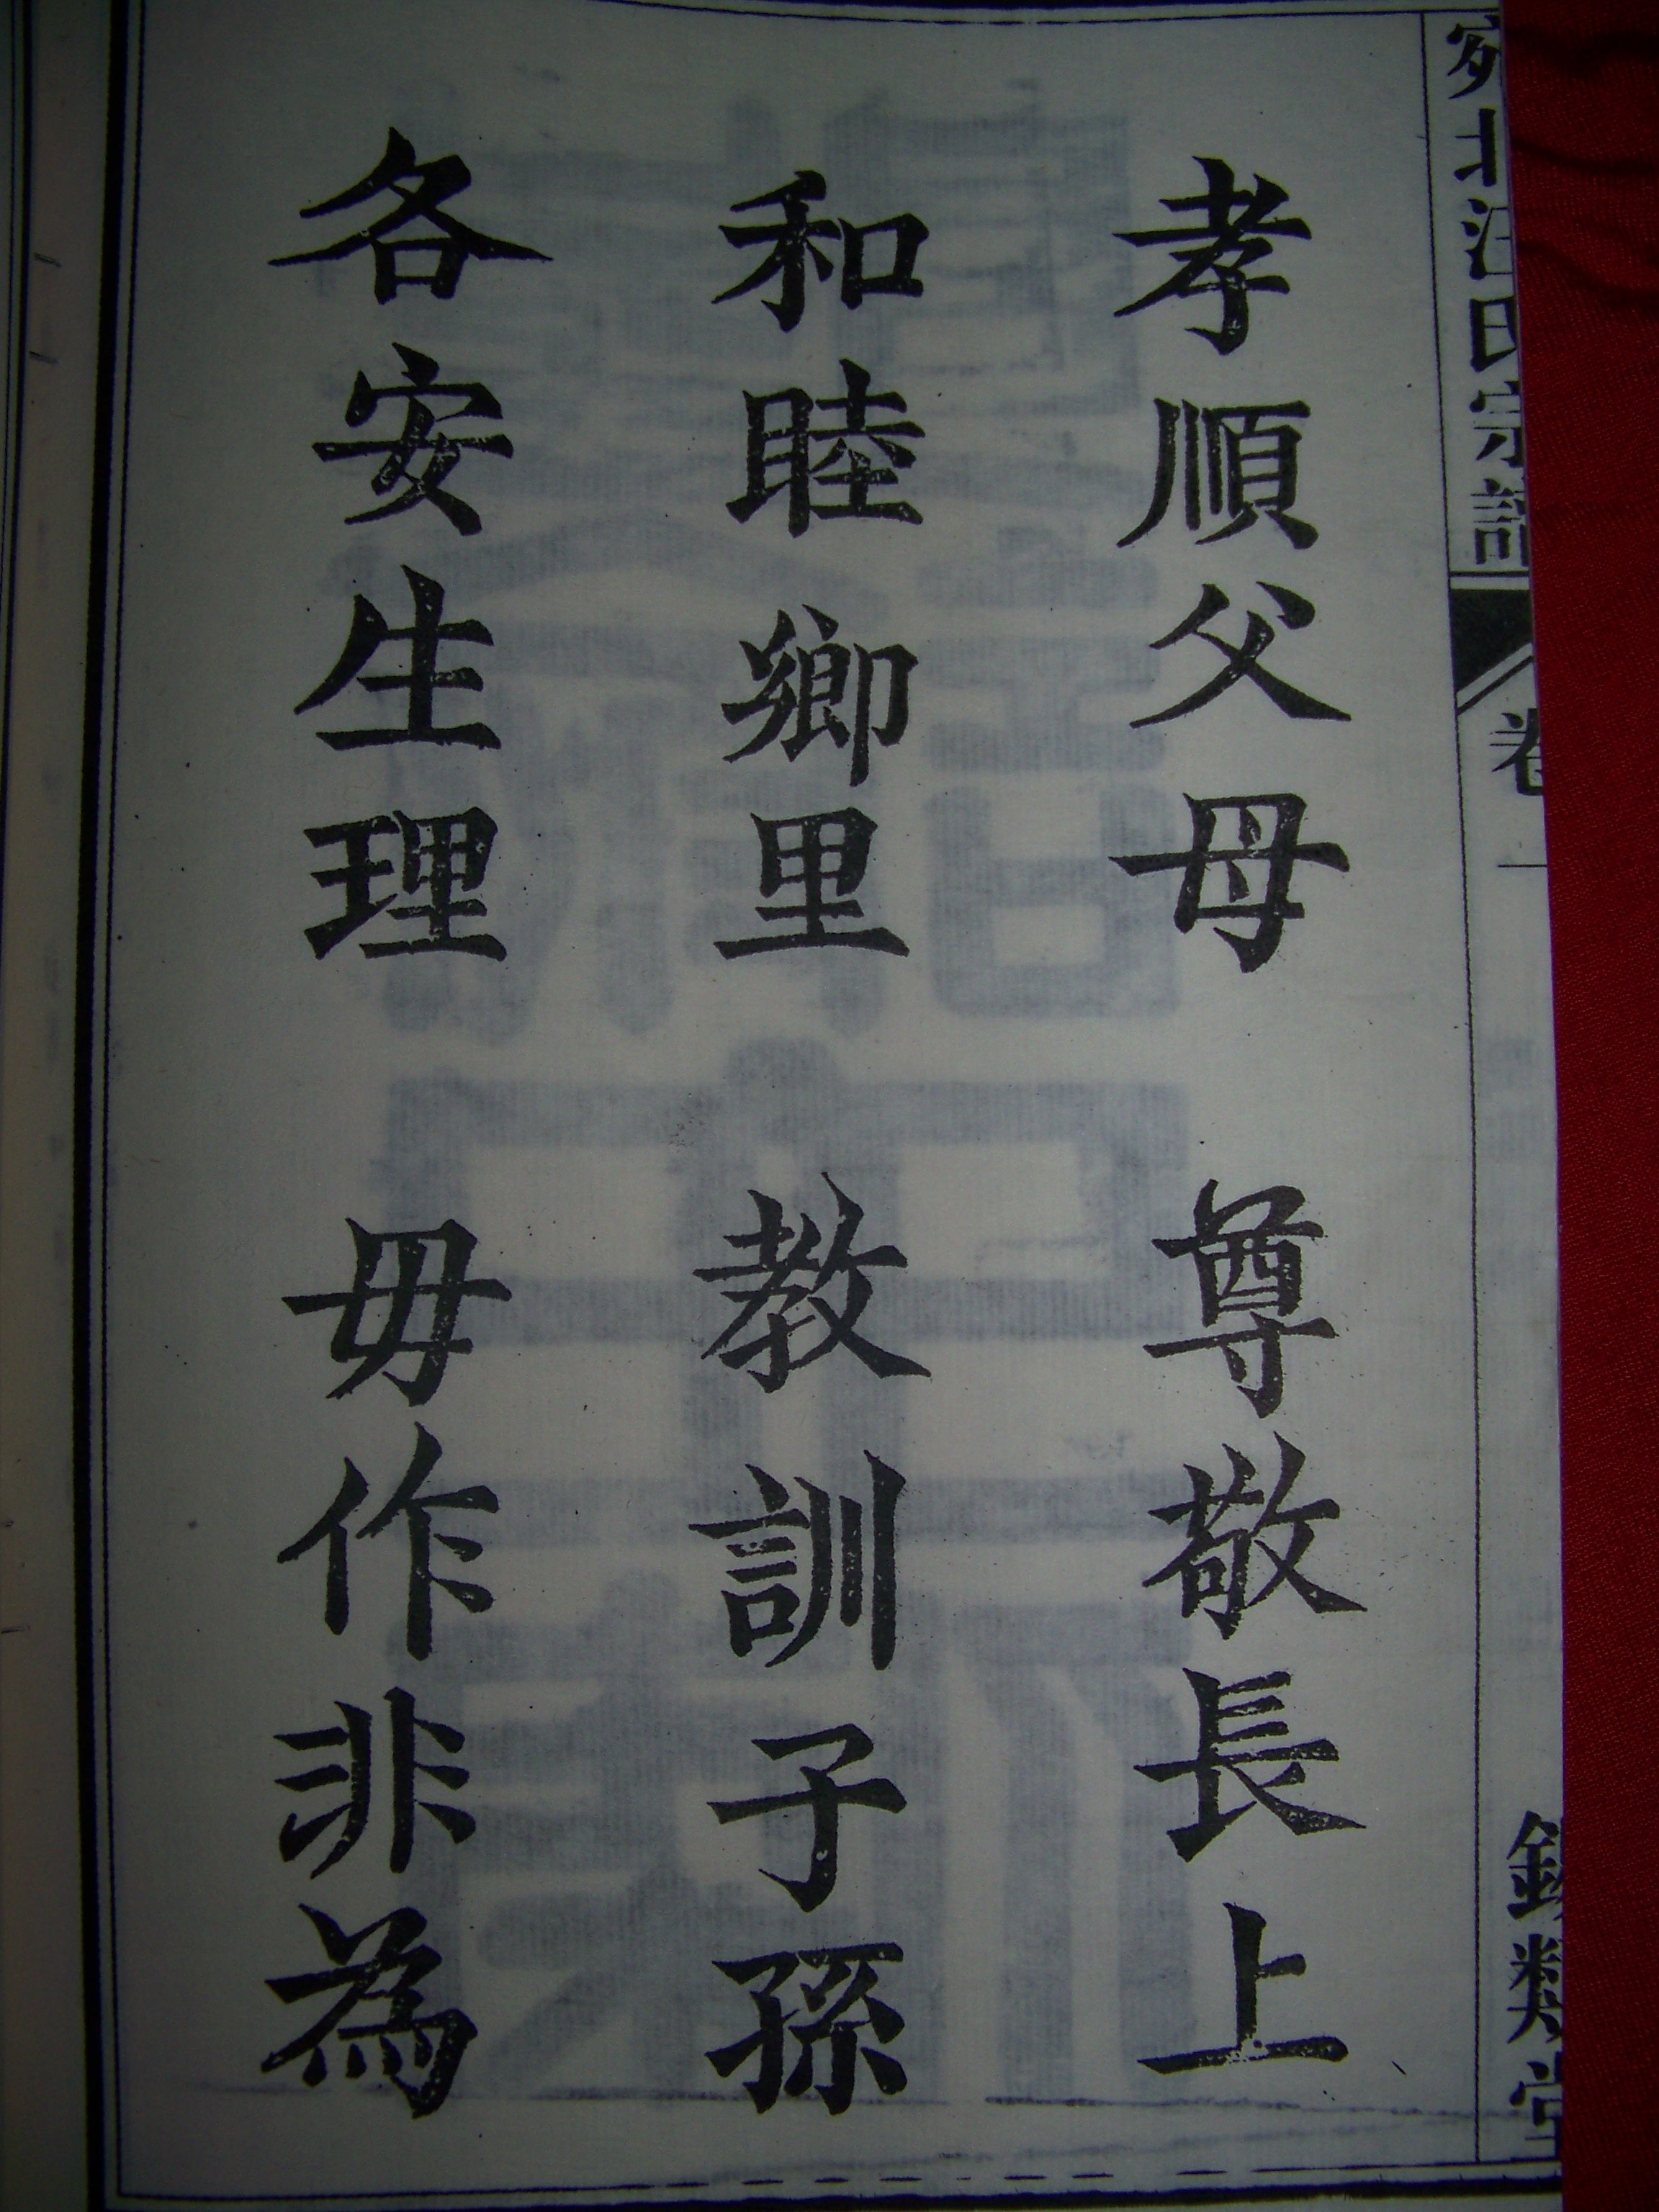 宛北汪氏宗譜 卷一
孝順父母 尊敬長上
和睦鄉里 教訓子孫
各安生理 毋作非為